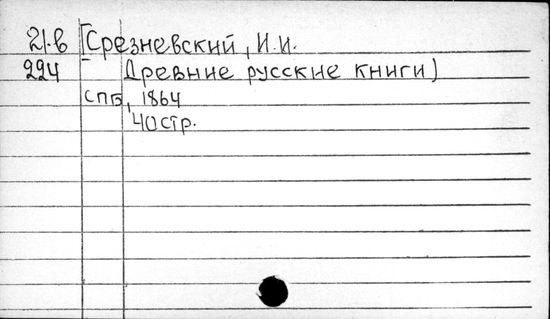 21.в [Срезневский, И.И.
224 Древние русские книги)
СПБ, 1864
40стр.